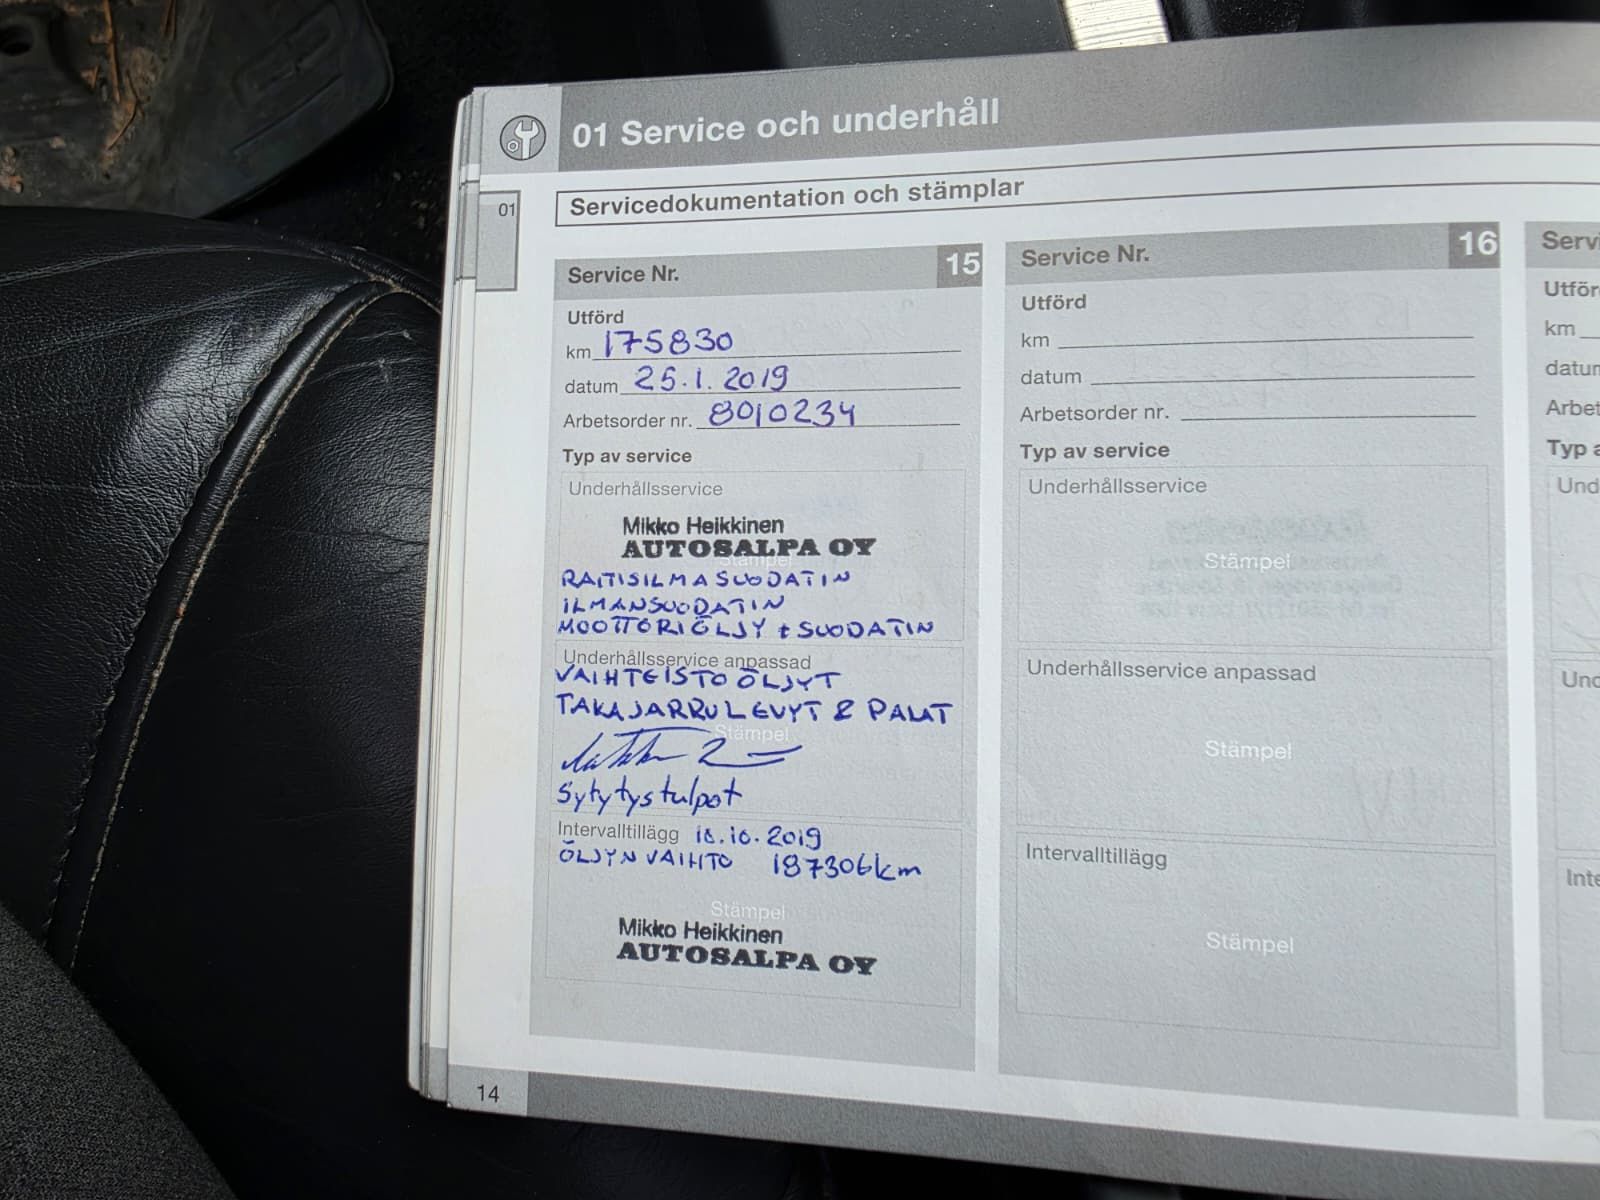 01 Service och underhåll
01
Servicedokumentation och stämplar
Service Nr. 15
Utförd
km 175830
datum 25.1.2019
Arbetsorder nr. 8010234
Typ av service
Underhållsservice
Mikko Heikkinen
AUTOSALPA OY
Stämpel
RAITISILMASUODATIN
ILMANSUODATIN
MOOTTORIÖLJY + SUODATIN
Underhållsservice anpassad
VAIHTEISTOÖLJYT
TAKAJARRULEVYT & PALAT
Stämpel
Sytytystulpat
Intervalltillägg 18.10.2019
ÖLJYN VAIHTO 187306km
Stämpel
Mikko Heikkinen
AUTOSALPA OY
14
Service Nr. 16
Utförd
km
datum
Arbetsorder nr.
Typ av service
Underhållsservice
Stämpel
Underhållsservice anpassad
Stämpel
Intervalltillägg
Stämpel
Servi
Utför
km
datum
Arbet
Typ a
Und
Und
Inte